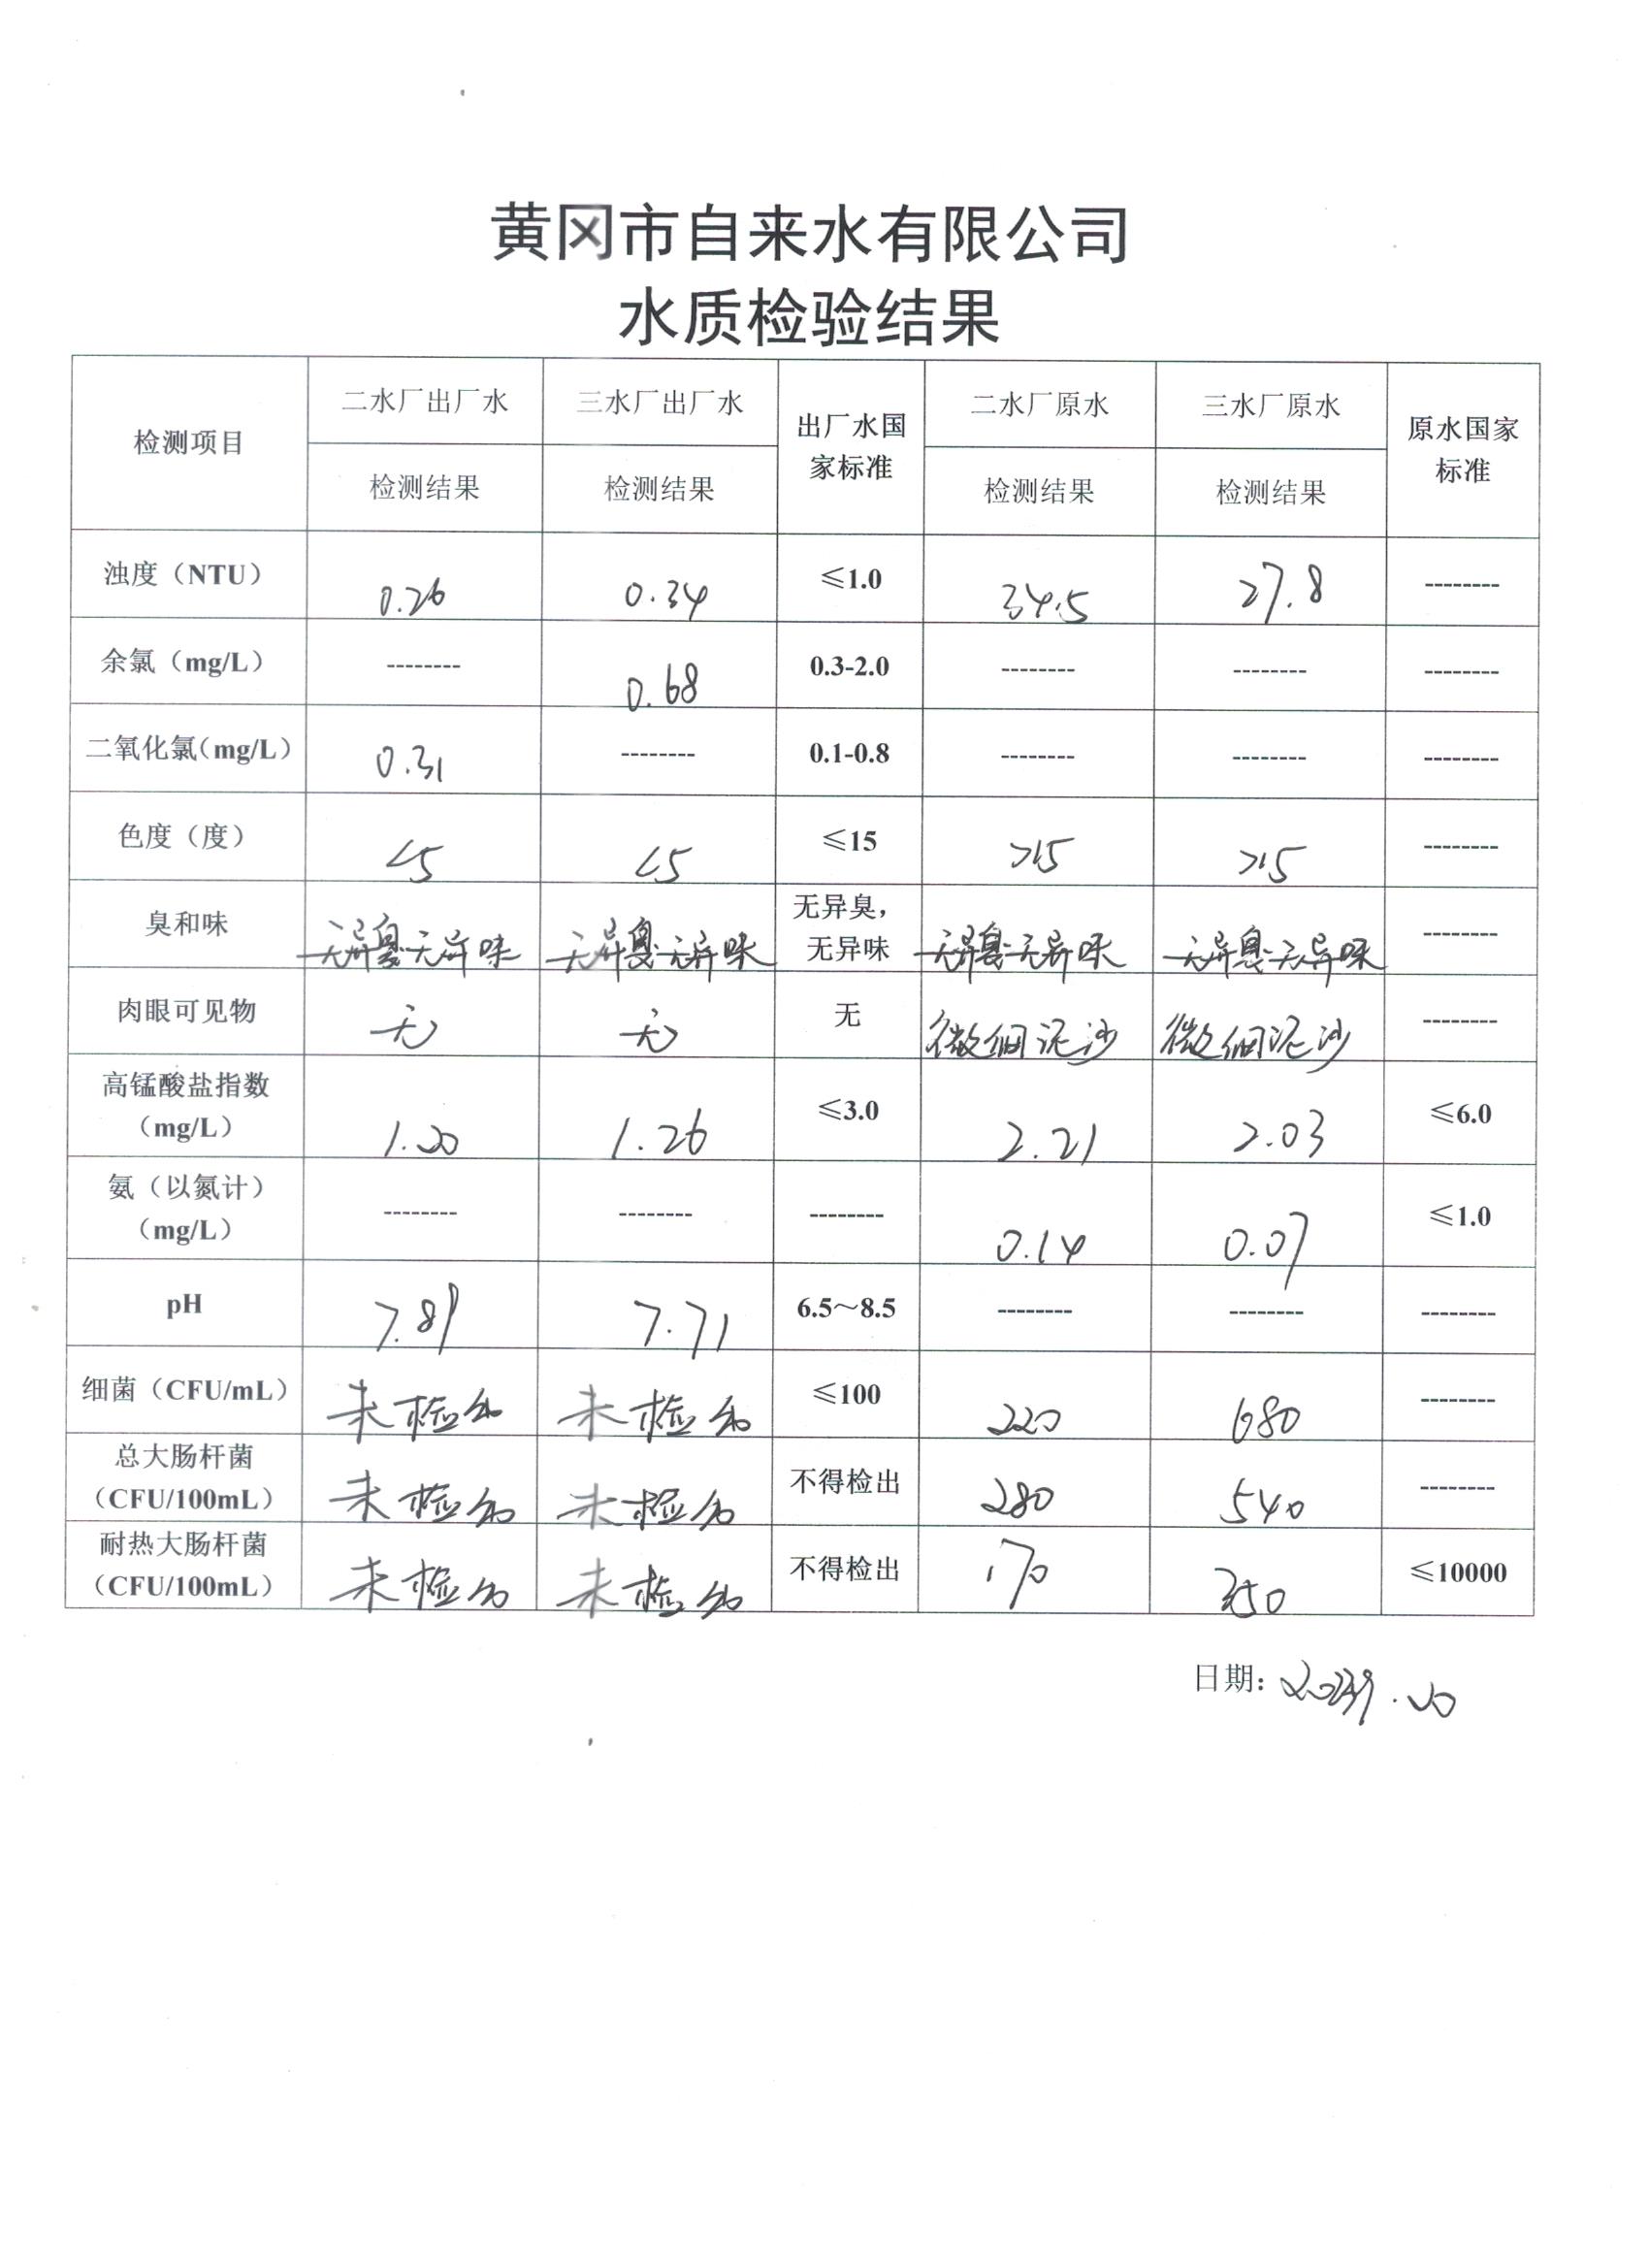 黄冈市自来水有限公司
水质检验结果
检测项目 二水厂出厂水 三水厂出厂水 出厂水国家标准 二水厂原水 三水厂原水 原水国家标准
检测结果 检测结果 检测结果 检测结果
浊度（NTU） 0.26 0.34 ≤1.0 34.5 27.8 --------
余氯（mg/L） -------- 0.68 0.3-2.0 -------- -------- --------
二氧化氯（mg/L） 0.31 -------- 0.1-0.8 -------- -------- --------
色度（度） <5 <5 ≤15 >15 >15 --------
臭和味 无异臭.无异味 无异臭.无异味 无异臭，无异味 无异臭.无异味 无异臭.无异味 --------
肉眼可见物 无 无 无 微细泥沙 微细泥沙 --------
高锰酸盐指数（mg/L） 1.20 1.26 ≤3.0 2.21 2.03 ≤6.0
氨（以氮计）（mg/L） -------- -------- -------- 0.14 0.07 ≤1.0
pH 7.89 7.71 6.5～8.5 -------- -------- --------
细菌（CFU/mL） 未检出 未检出 ≤100 220 680 --------
总大肠杆菌（CFU/100mL） 未检出 未检出 不得检出 280 540 --------
耐热大肠杆菌（CFU/100mL） 未检出 未检出 不得检出 170 350 ≤10000
日期：